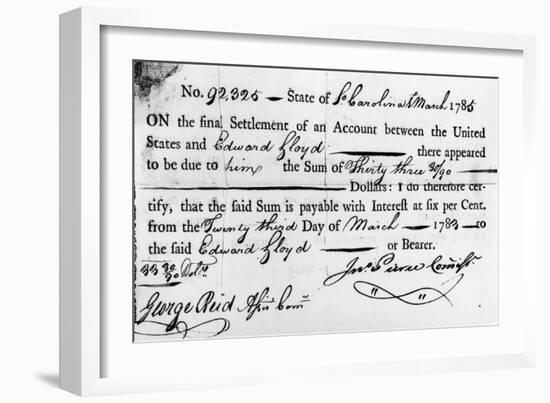 No. 92,325 — State of So. Carolina March 1785
ON the final Settlement of an Account between the United
States and Edward Lloyd —— there appeared
to be due to him the Sum of Thirty three 30/90 ——
—— Dollars: I do therefore cer-
tify, that the said Sum is payable with Interest at six per Cent.
from the Twenty third Day of March — 1783 — to
the said Edward Lloyd —— or Bearer.
33 30/90 Dolrs.
Jno. Pierce Commissr.
George Reid